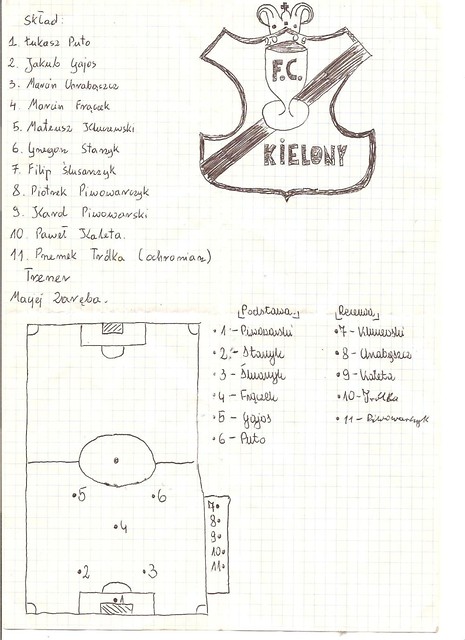 Skład:
1. Łukasz Puto
2. Jakub Gajos
3. Marcin Chrabąszcz
4. Marcin Frączek
5. Mateusz Kluczewski
6. Grzegorz Stanzyk
7. Filip Ślusarczyk
8. Piotrek Piwowarczyk
9. Karol Piwowarski
10. Paweł Kaleta.
11. Przemek Trólka (ochroniarz)
Trener
Maciej Zaręba.
F.C.
KIELONY
Podstawa:
1 - Piwowarski
2 - Stanzyk
3 - Ślusarczyk
4 - Frączek
5 - Gajos
6 - Puto
Rezerwa
7 - Kluczewski
8 - Chrabąszcz
9 - Kaleta
10 - Trólka
11 - Piwowarczyk
5
6
4
2
3
1
7
8
9
10
11